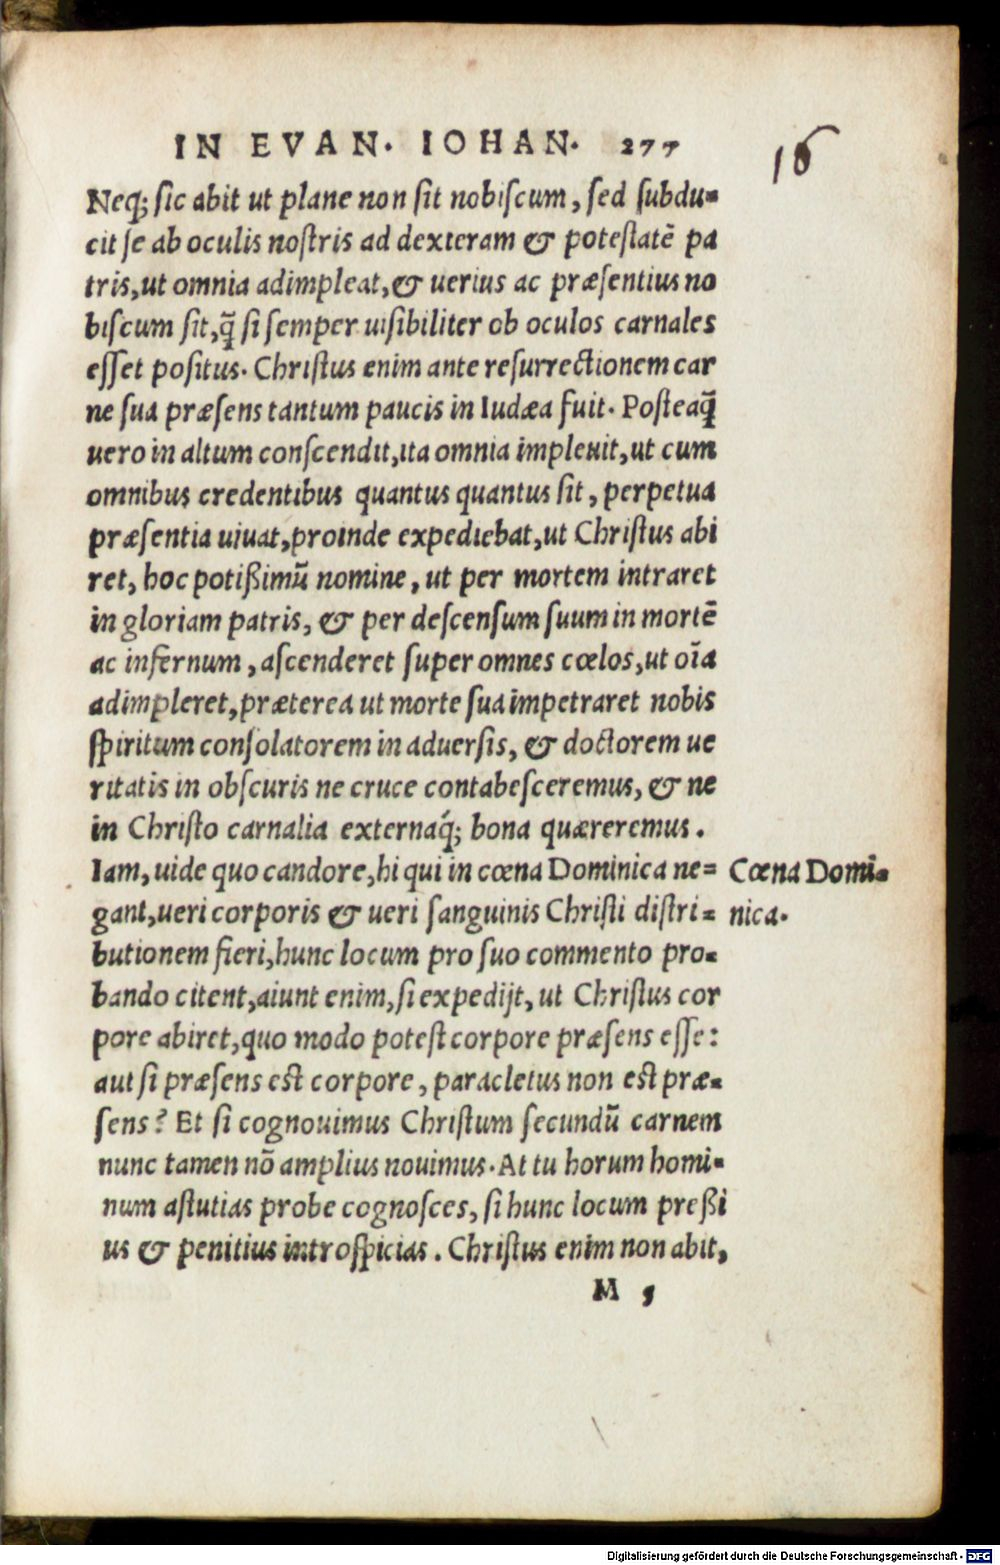 IN EVAN. IOHAN. 277
16
Neq; sic abit ut plane non sit nobiscum, sed subdu=
cit se ab oculis nostris ad dexteram & potestatẽ pa
tris, ut omnia adimpleat, & uerius ac præsentius no
biscum sit, q̃ si semper uisibiliter ob oculos carnales
esset positus. Christus enim ante resurrectionem car
ne sua præsens tantum paucis in Iudæa fuit. Posteaq̃
uero in altum conscendit, ita omnia impleuit, ut cum
omnibus credentibus quantus quantus sit, perpetua
præsentia uiuat, proinde expediebat, ut Christus abi
ret, hoc potißimũ nomine, ut per mortem intraret
in gloriam patris, & per descensum suum in mortẽ
ac infernum, ascenderet super omnes cœlos, ut oĩa
adimpleret, præterea ut morte sua impetraret nobis
spiritum consolatorem in aduersis, & doctorem ue
ritatis in obscuris ne cruce contabesceremus, & ne
in Christo carnalia externaq́; bona quæreremus.
Iam, uide quo candore, hi qui in cœna Dominica ne=
gant, ueri corporis & ueri sanguinis Christi distri=
butionem fieri, hunc locum pro suo commento pro=
bando citent, aiunt enim, si expedijt, ut Christus cor
pore abiret, quo modo potest corpore præsens esse:
aut si præsens est corpore, paracletus non est præ=
sens? Et si cognouimus Christum secundũ carnem
nunc tamen nõ amplius nouimus. At tu horum homi=
num astutias probe cognosces, si hunc locum preßi
us & penitius introspicias. Christus enim non abit,
Cœna Domi=
nica.
M 5
Digitalisierung gefördert durch die Deutsche Forschungsgemeinschaft - DFG